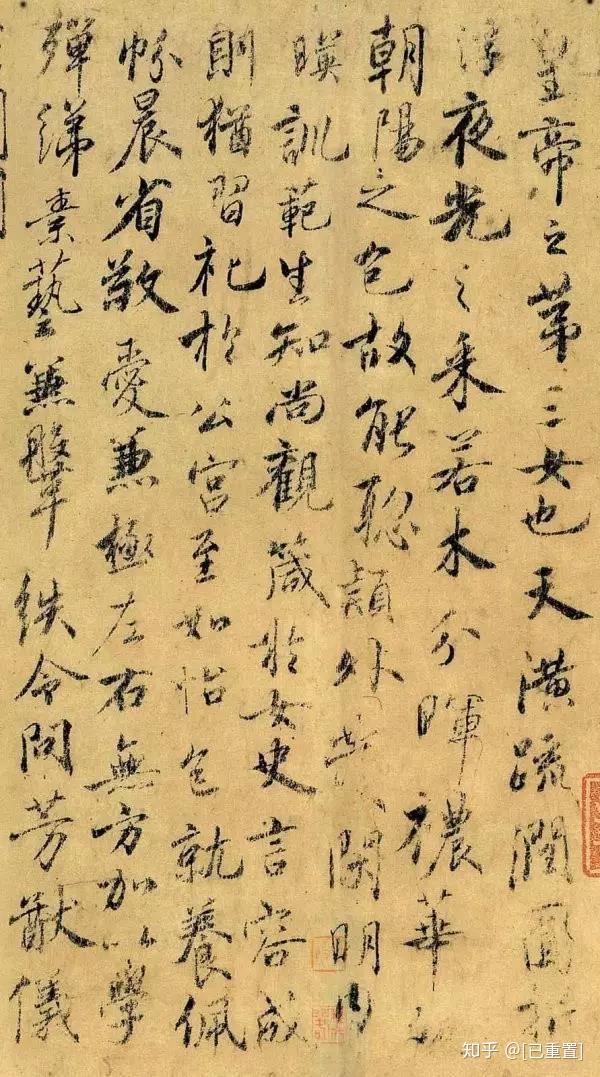 皇帝之第三女也天潢疏潤圓折
浮夜光之采若木分暉襛華
朝陽之色故能聡穎外發閑明内
暎訓範生知尚觀箴於女史言容成
則猶習礼於公宮至如怡色就養佩
帉晨省敬愛兼極左右無方加以學
殫綈素藝兼鞶紩令問芳猷儀
知乎 @[已重置]